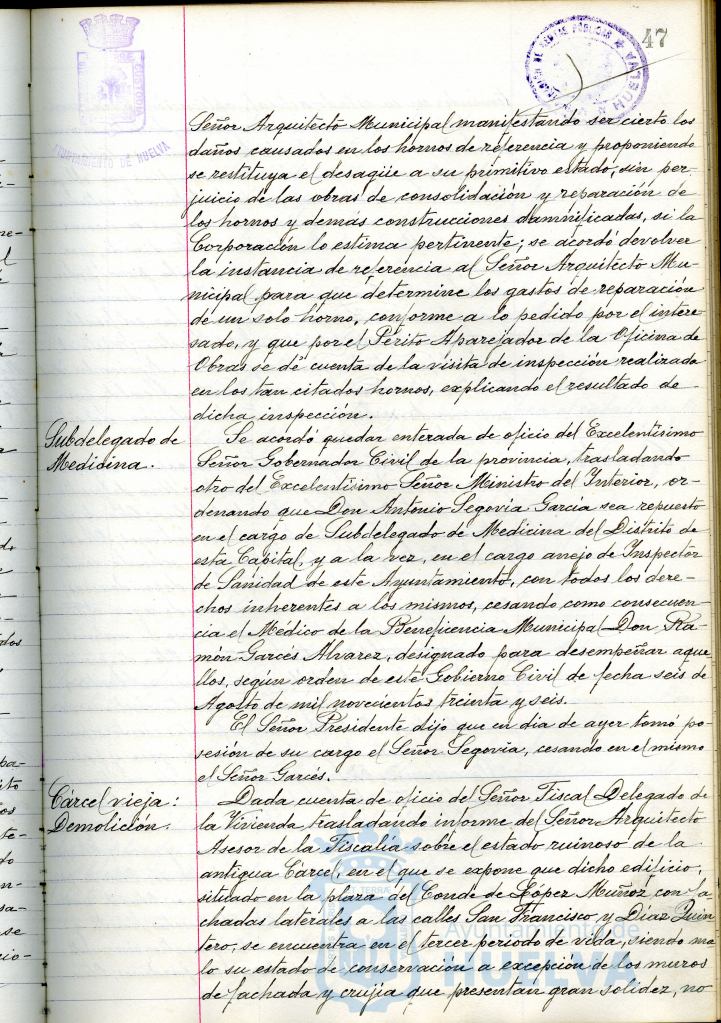 47
AYUNTAMIENTO DE HUELVA
Señor Arquitecto Municipal manifestando ser cierto los
daños causados en los hornos de referencia y proponiendo
se restituya el desagüe a su primitivo estado, sin per-
juicio de las obras de consolidación y reparación de
los hornos y demás construcciones damnificadas, si la
Corporación lo estima pertinente; se acordó devolver
la instancia de referencia al Señor Arquitecto Mu-
nicipal para que determine los gastos de reparación
de un solo horno, conforme a lo pedido por el intere-
sado, y que por el Périto Aparejador de la Oficina de
Obras se dé cuenta de la visita de inspección realizada
en los tan citados hornos, explicando el resultado de
dicha inspección.
Subdelegado de
Medicina.
Se acordó quedar enterada de oficio del Excelentísimo
Señor Gobernador Civil de la provincia, trasladando
otro del Excelentísimo Señor Ministro del Interior, or-
denando que Don Antonio Segovia García sea repuesto
en el cargo de Subdelegado de Medicina del Distrito de
esta Capital, y a la vez, en el cargo anejo de Inspector
de Sanidad de este Ayuntamiento, con todos los dere-
chos inherentes a los mismos, cesando como consecuen-
cia el Médico de la Beneficencia Municipal Don Ra-
món Garcés Alvarez, designado para desempeñar aque-
llos, segun orden de este Gobierno Civil de fecha seis de
Agosto de mil novecientos treinta y seis.
El Señor Presidente dijo que en dia de ayer tomó po-
sesión de su cargo el Señor Segovia, cesando en el mismo
el Señor Garcés.
Cárcel vieja:
Demolición.
Dada cuenta de oficio del Señor Fiscal Delegado de
la Vivienda trasladando informe del Señor Arquitecto
Asesor de la Fiscalía sobre el estado ruinoso de la
antigua Cárcel, en el que se expone que dicho edificio,
situado en la plaza del Conde de López Muñoz con fa-
chadas laterales a las calles San Francisco y Diaz Quin-
tero, se encuentra en el tercer periodo de vida, siendo ma-
lo su estado de conservación a excepción de los muros
de fachada y crujía que presentan gran solidez, no
Ayuntamiento de
HUELVA